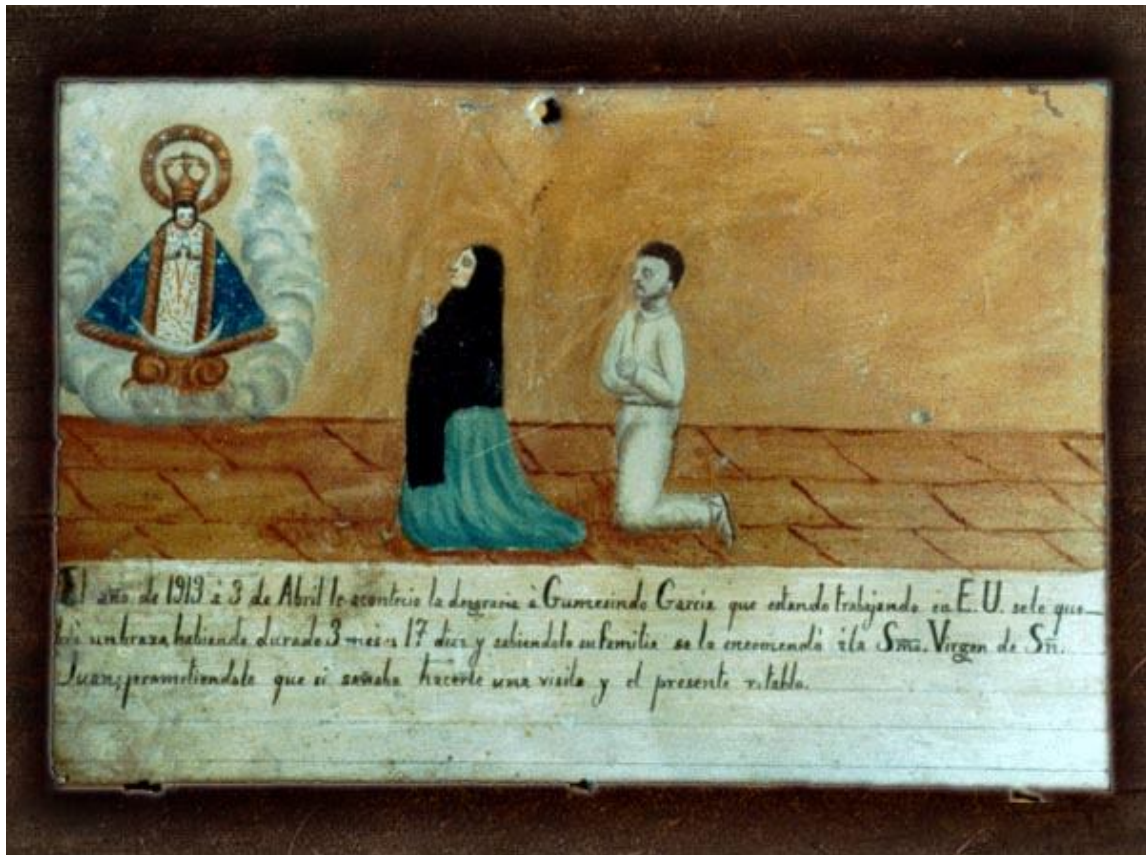 El año de 1919 a 3 de Abril le acontecio la desgracia à Gumesindo Garcia que estando trabajando en E.U. se le que-
brò un brazo, habiendo durado 3 meses 17 dias y sabiendolo su familia se lo encomendò à la Sma. Virgen de Sn.
Juan; prometiendole que si sanaba hacerle una visita y el presente retablo.